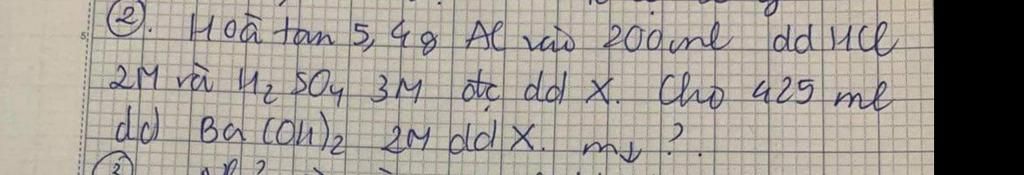 ②. Hoà tan 5,4g Al vào 200ml dd HCl
2M và H₂SO₄ 3M đc dd X. Cho 425 ml
dd Ba(OH)₂ 2M dd X. m↓?.
③